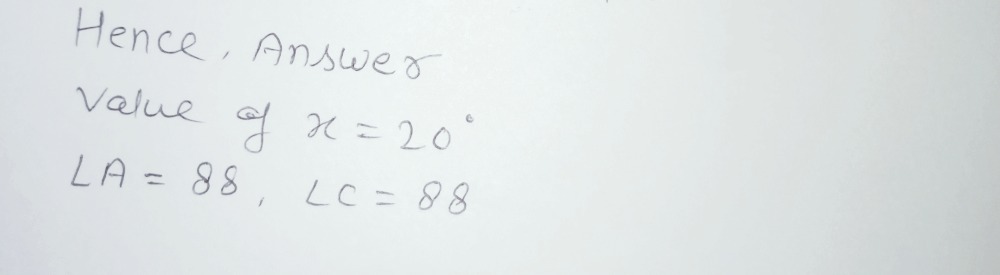 Hence, Answer
Value of x = 20°
∠A = 88, ∠C = 88